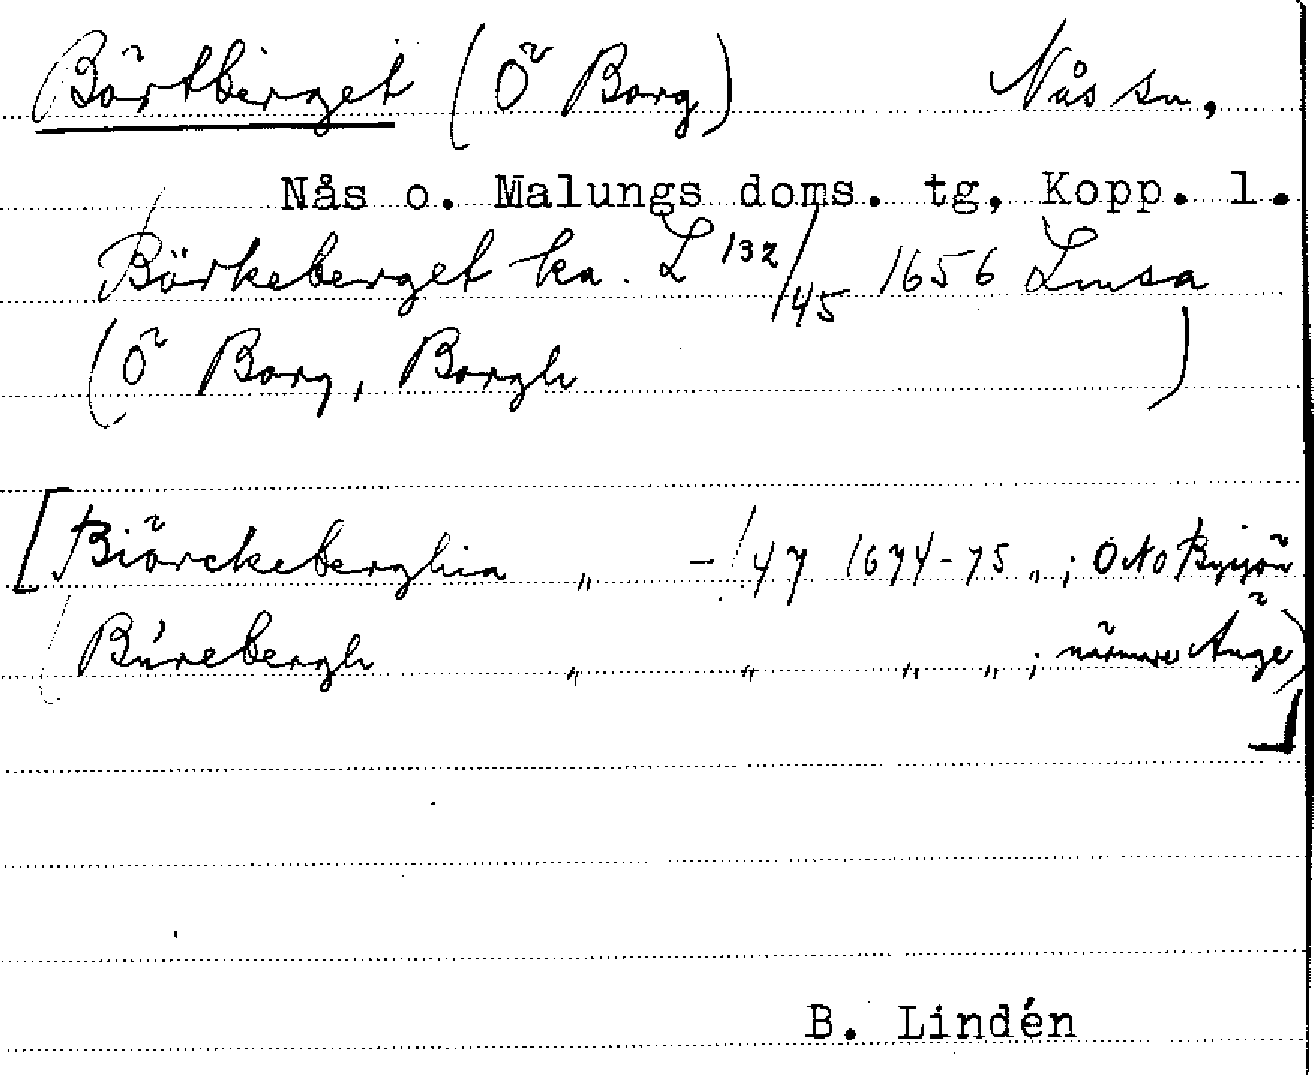 Börtberget (Ö Borg) Nås sn,
Nås o. Malungs doms. tg, Kopp. l.
Börkeberget ka. L 132/45 1656 Lmsa
(Ö Borg, Borgh )
[Biörckeberghia " -/47 1674-75 "; O No Byssjön
(Bürebergh " " " "; närmare Änge)]
B. Lindén